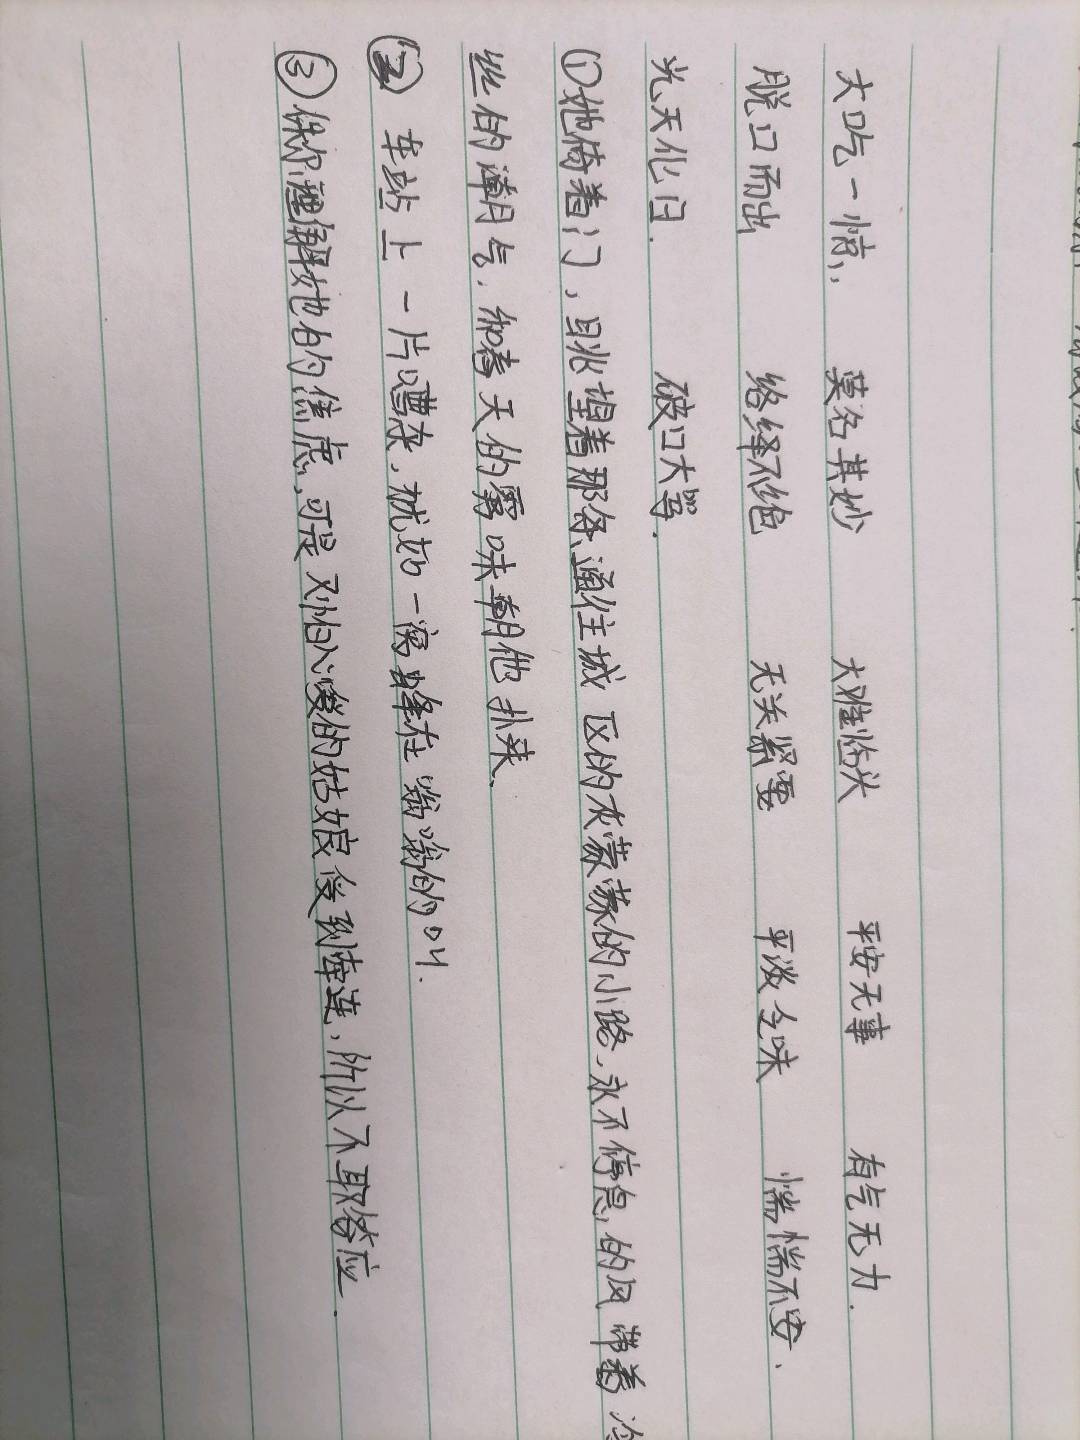 大吃一惊, 莫名其妙 大难临头 平安无事 有气无力.
脱口而出 络绎不绝 无关紧要 平淡乏味 惴惴不安.
光天化日. 破口大骂.
①她倚着门，眺望着那条通往城区的灰蒙蒙的小路、永不停息的风带着冷
丝的潮气.和春天的霉味朝他扑来.
② 车站上一片嘈杂.犹如一窝蜂在嗡嗡的叫.
③保尔理解她的焦虑,可是 对怕心爱的姑娘受到牵连,所以不敢答应.